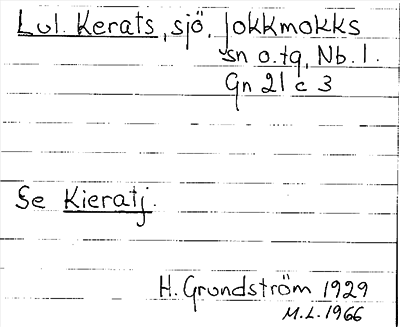 Lul. Kerats, sjö, Jokkmokks
sn o. tg, Nb. l.
Gn 21 c 3
Se Kieratj.
H. Grundström 1929
M.L. 1966